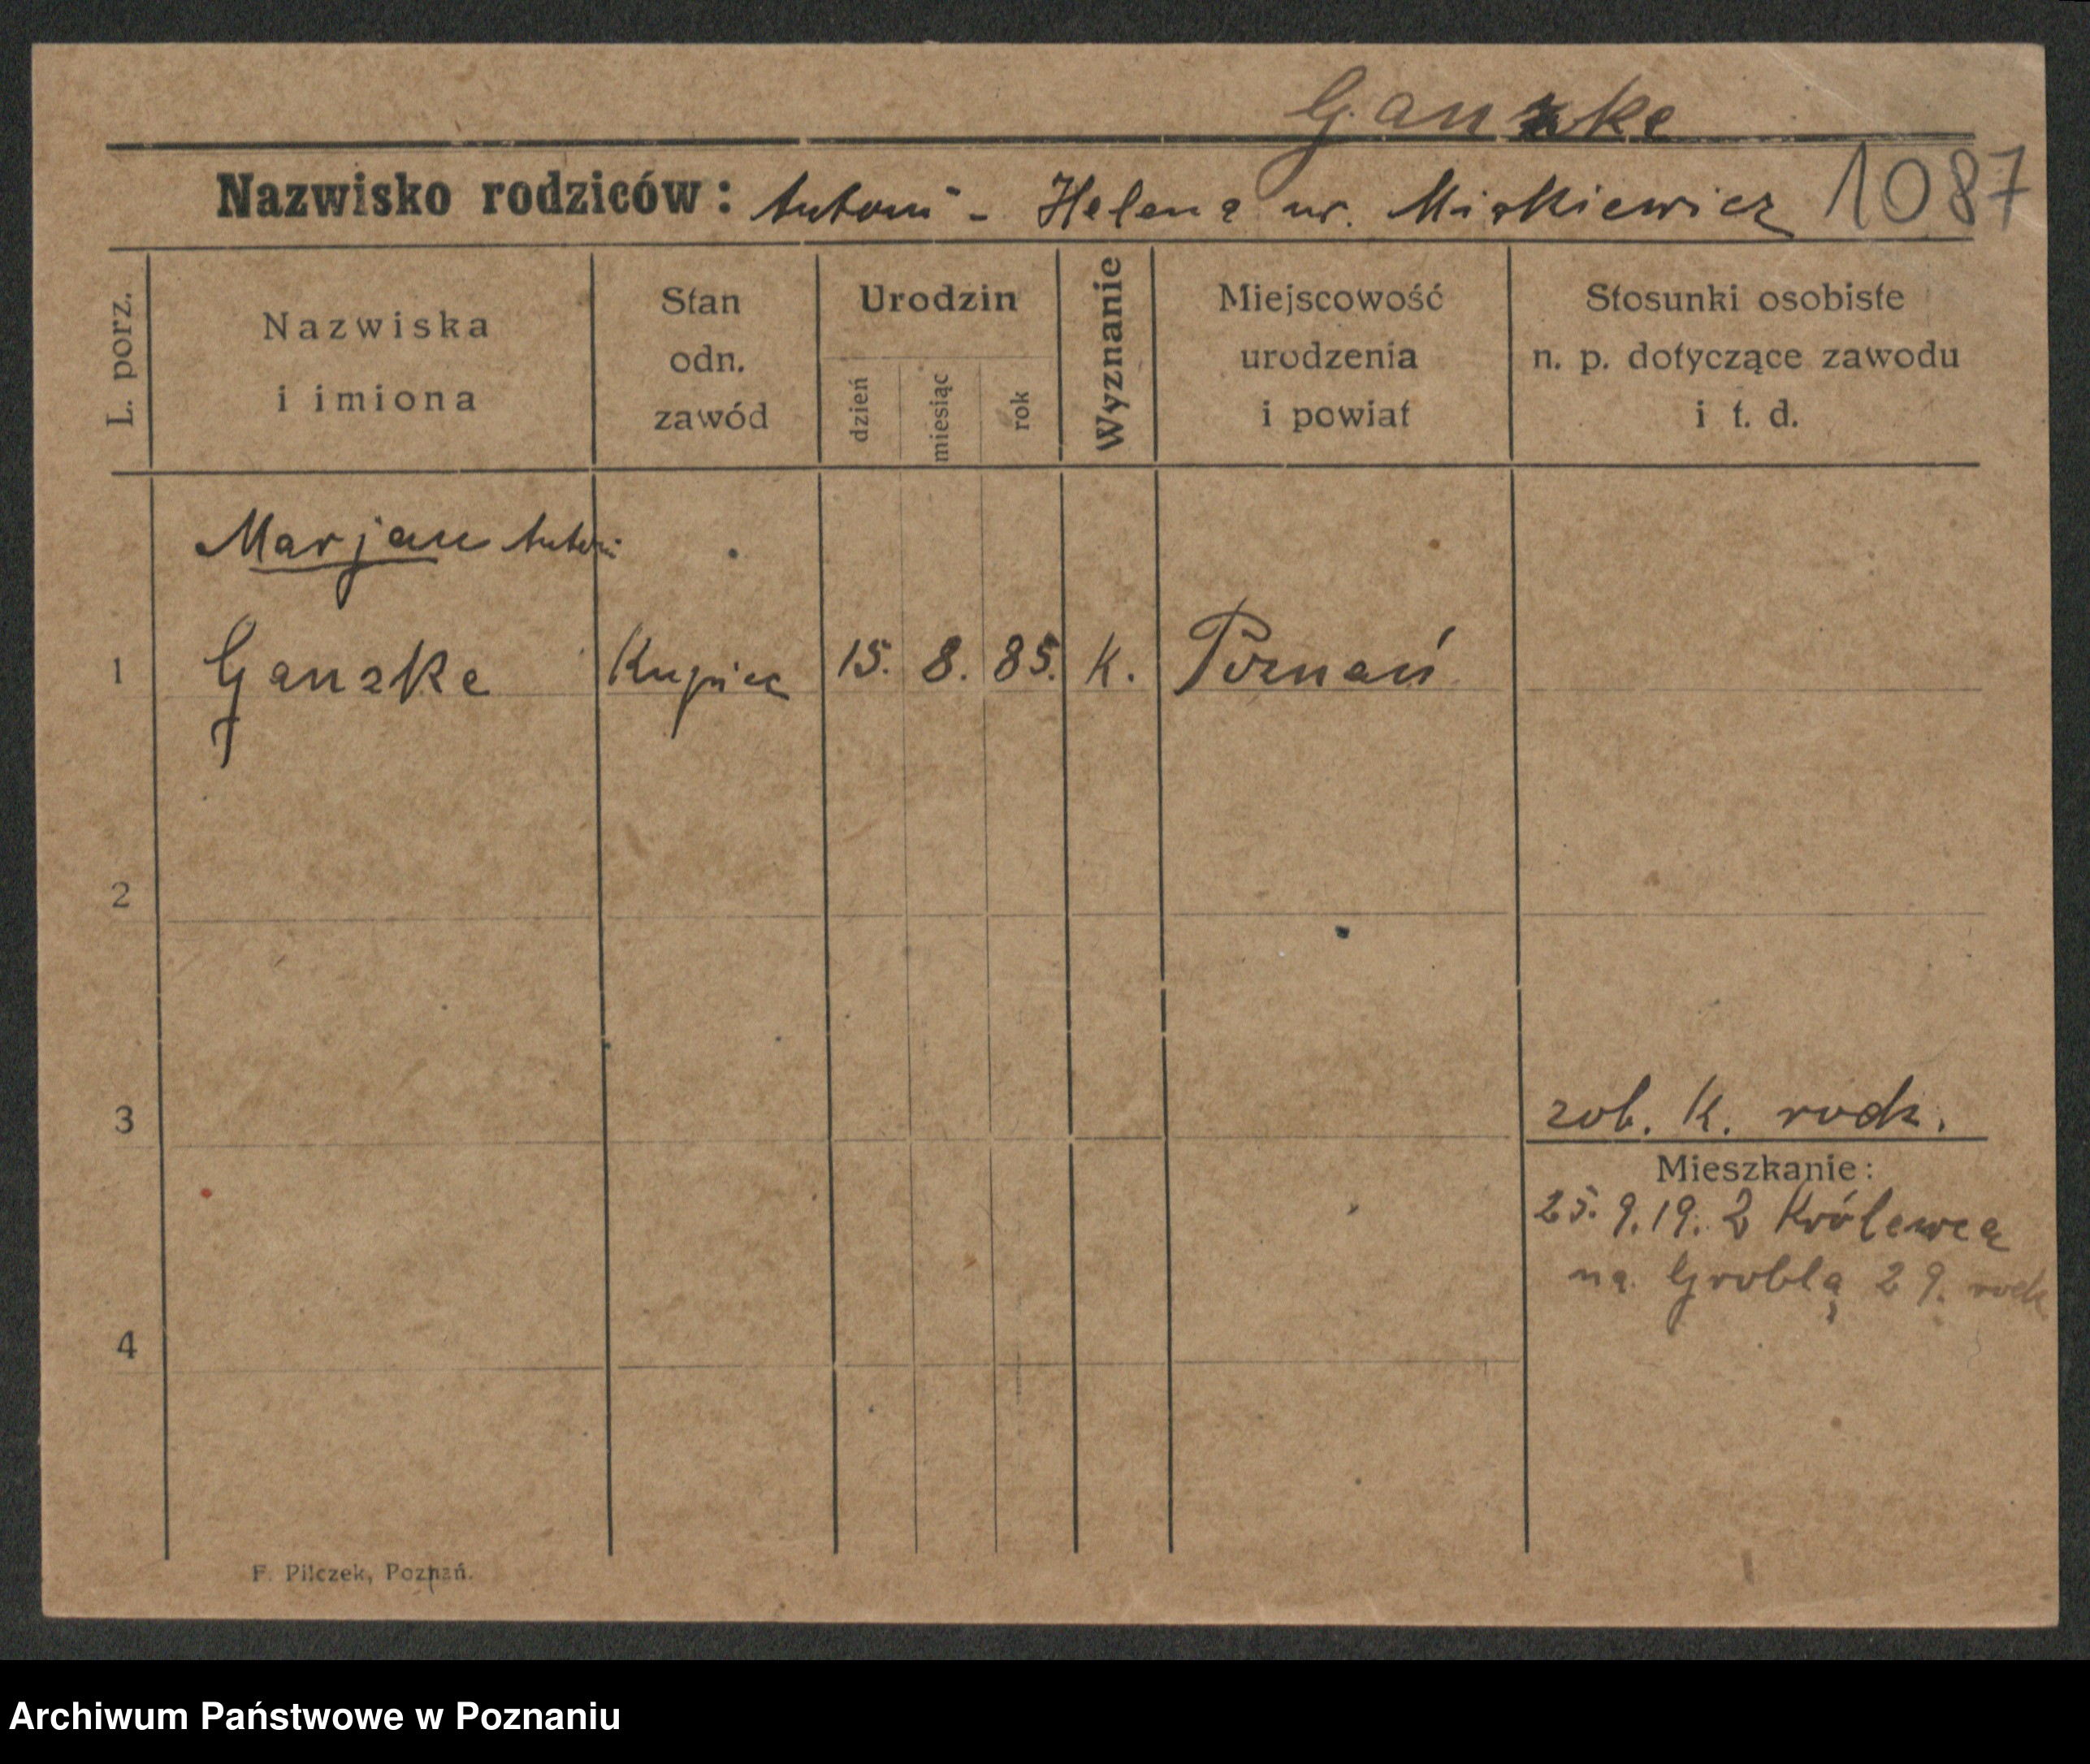 Ganzke
Nazwisko rodziców: Antoni - Helena ur. Miśkiewicz 1087
L. porz.
Nazwiska
i imiona
Stan
odn.
zawód
Urodzin
dzień
miesiąc
rok
Wyznanie
Miejscowość
urodzenia
i powiat
Stosunki osobiste
n. p. dotyczące zawodu
i t. d.
Marjan Antoni
1 Ganzke Kupiec 15. 8. 85. k. Poznań
2
3 zob. K. rodz.
Mieszkanie:
25. 9. 19. z Królewca
na Groblą 29. rodz
4
F. Pilczek, Poznań.
Archiwum Państwowe w Poznaniu